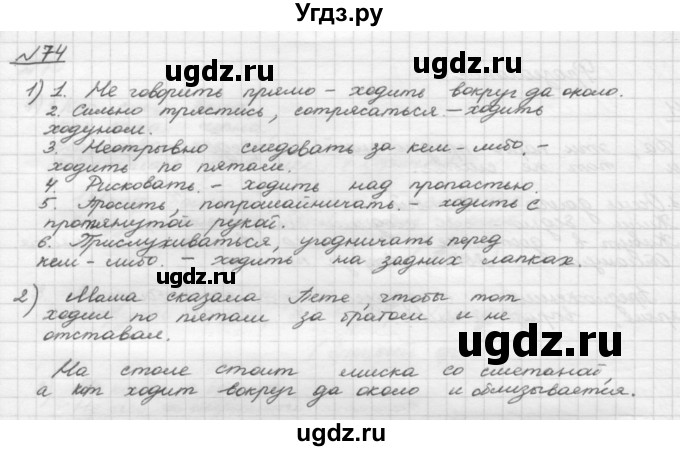 Угдз.ру
№74
1) 1. Не говорить прямо – ходить вокруг да около.
2. Сильно трястись, сотрясаться. – ходить
ходуном.
3. Неотрывно следовать за кем-либо. –
ходить по пятам.
4. Рисковать. – ходить над пропастью.
5. Просить, попрошайничать. – ходить с
протянутой рукой.
6. Прислуживаться, угодничать перед
кем-либо. – ходить на задних лапках.
2) Мама сказала Пете, чтобы тот
ходил по пятам за братом и не
отставал.
На столе стоит миска со сметаной
а кот ходит вокруг да около и облизывается.
ugdz.ru
ugdz.ru
ugdz.ru
ugdz.ru
ugdz.ru